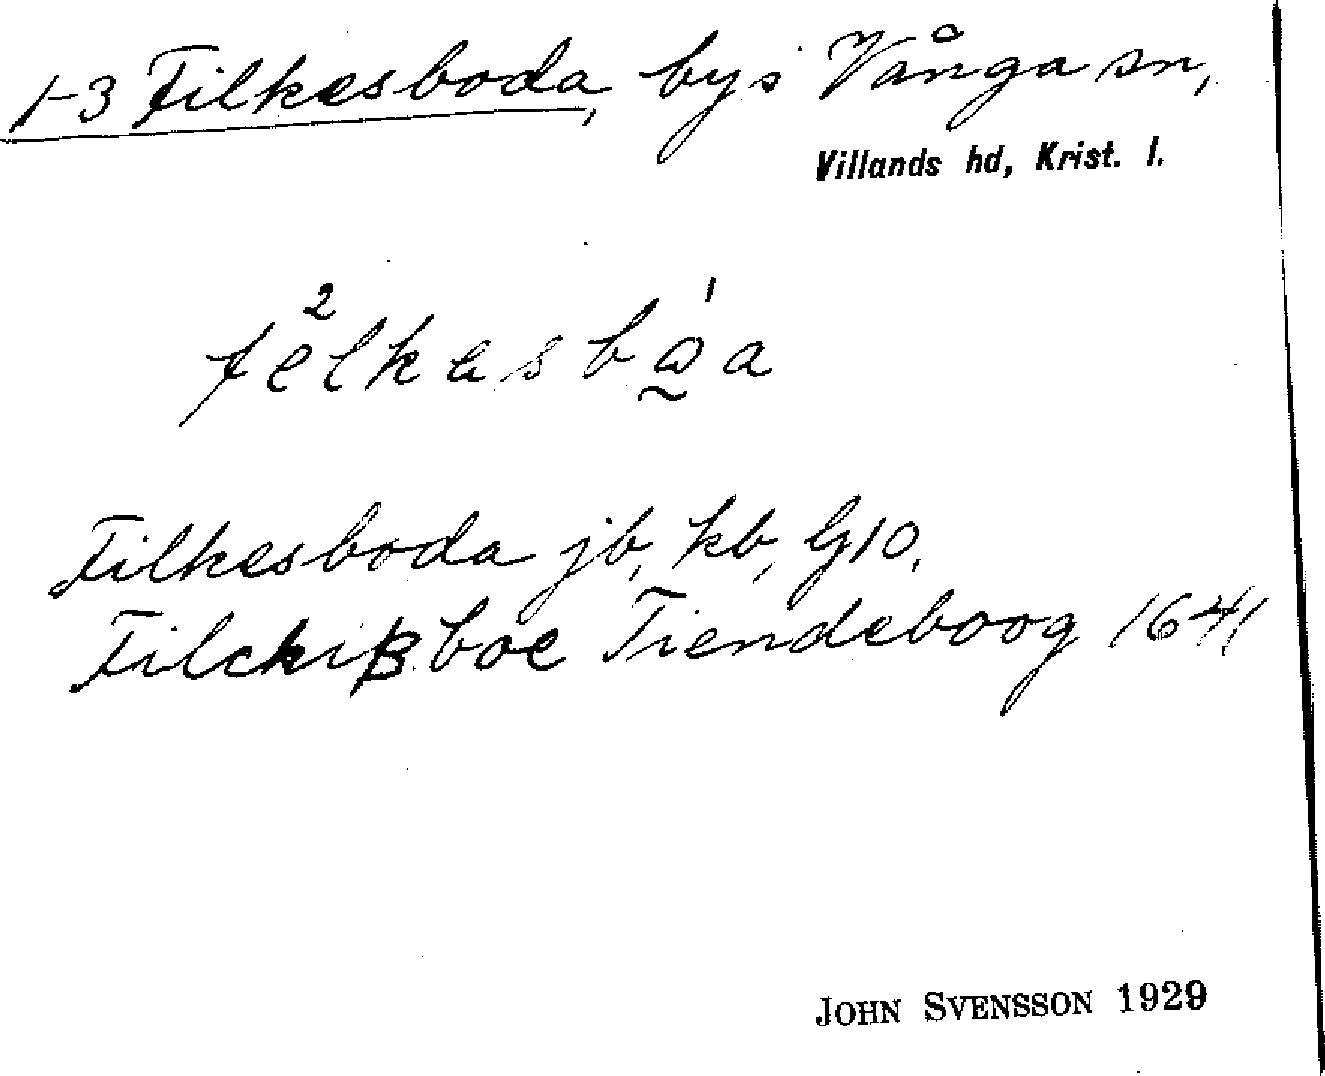 1-3 Filkesboda, by i Vånga sn,
Villands hd, Krist. l.
Filkesboda jb, kb, G10.
Filckißboe Tiendeboog 1641
JOHN SVENSSON 1929